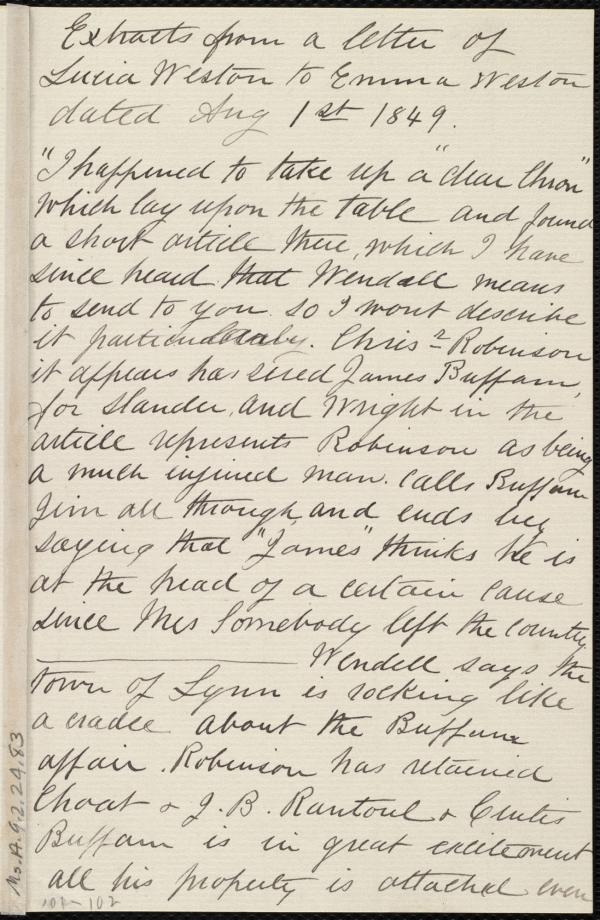 Extracts from a letter of
Lucia Weston to Emma Weston
dated Aug 1st 1849.
"I happened to take up a "dear Chron"
which lay upon the table and found
a short article there, which I have
since heard that Wendell means
to send to you so I wont describe
it particularly. Chrisr Robinson
it appears has sued James Buffam,
for slander, and Wright in the
article represents Robinson as being
a much injured man. Calls Buffam
Jim all through, and ends by
saying that "James" thinks he is
at the head of a certain cause
since Mrs Somebody left the country
Wendell says the
town of Lynn is rocking like
a cradle about the Buffam
affair. Robinson has retained
Choat & J. B. Rantoul & Curtis
Buffam is in great excitement
all his property is attached even
Ms.A.9.2.24.83